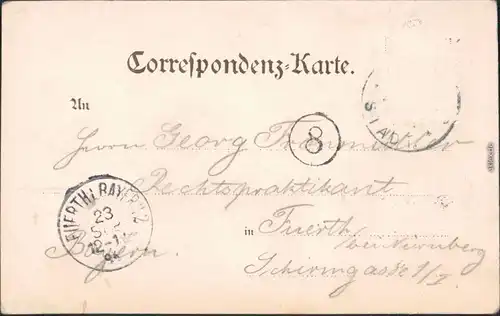 Correspondenz-Karte.
An
Herrn Georg
8
Rechtspraktikant
FUERTH I. BAYERN 2
23
SEP
12-1
in Fuerth
Bayern.
bei Nürnberg
Schirmgasse 1/I
STADT